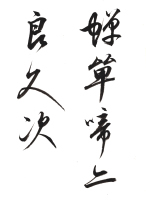 蝉單啼上
良久次